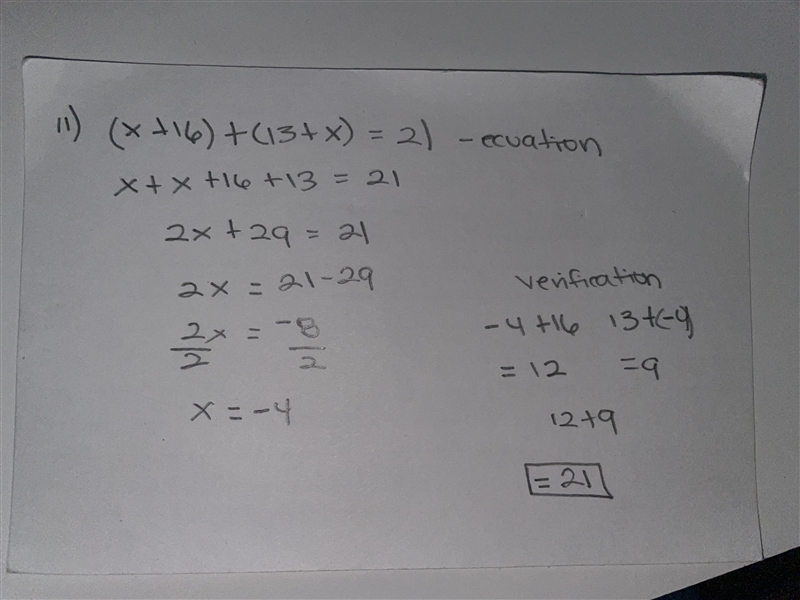 11) (x+16)+(13+x) = 21 - ecuation
x+x+16+13 = 21
2x+29 = 21
2x = 21-29
2x = -8
2 2
x = -4
verification
-4+16 13+(-4)
= 12 =9
12+9
= 21